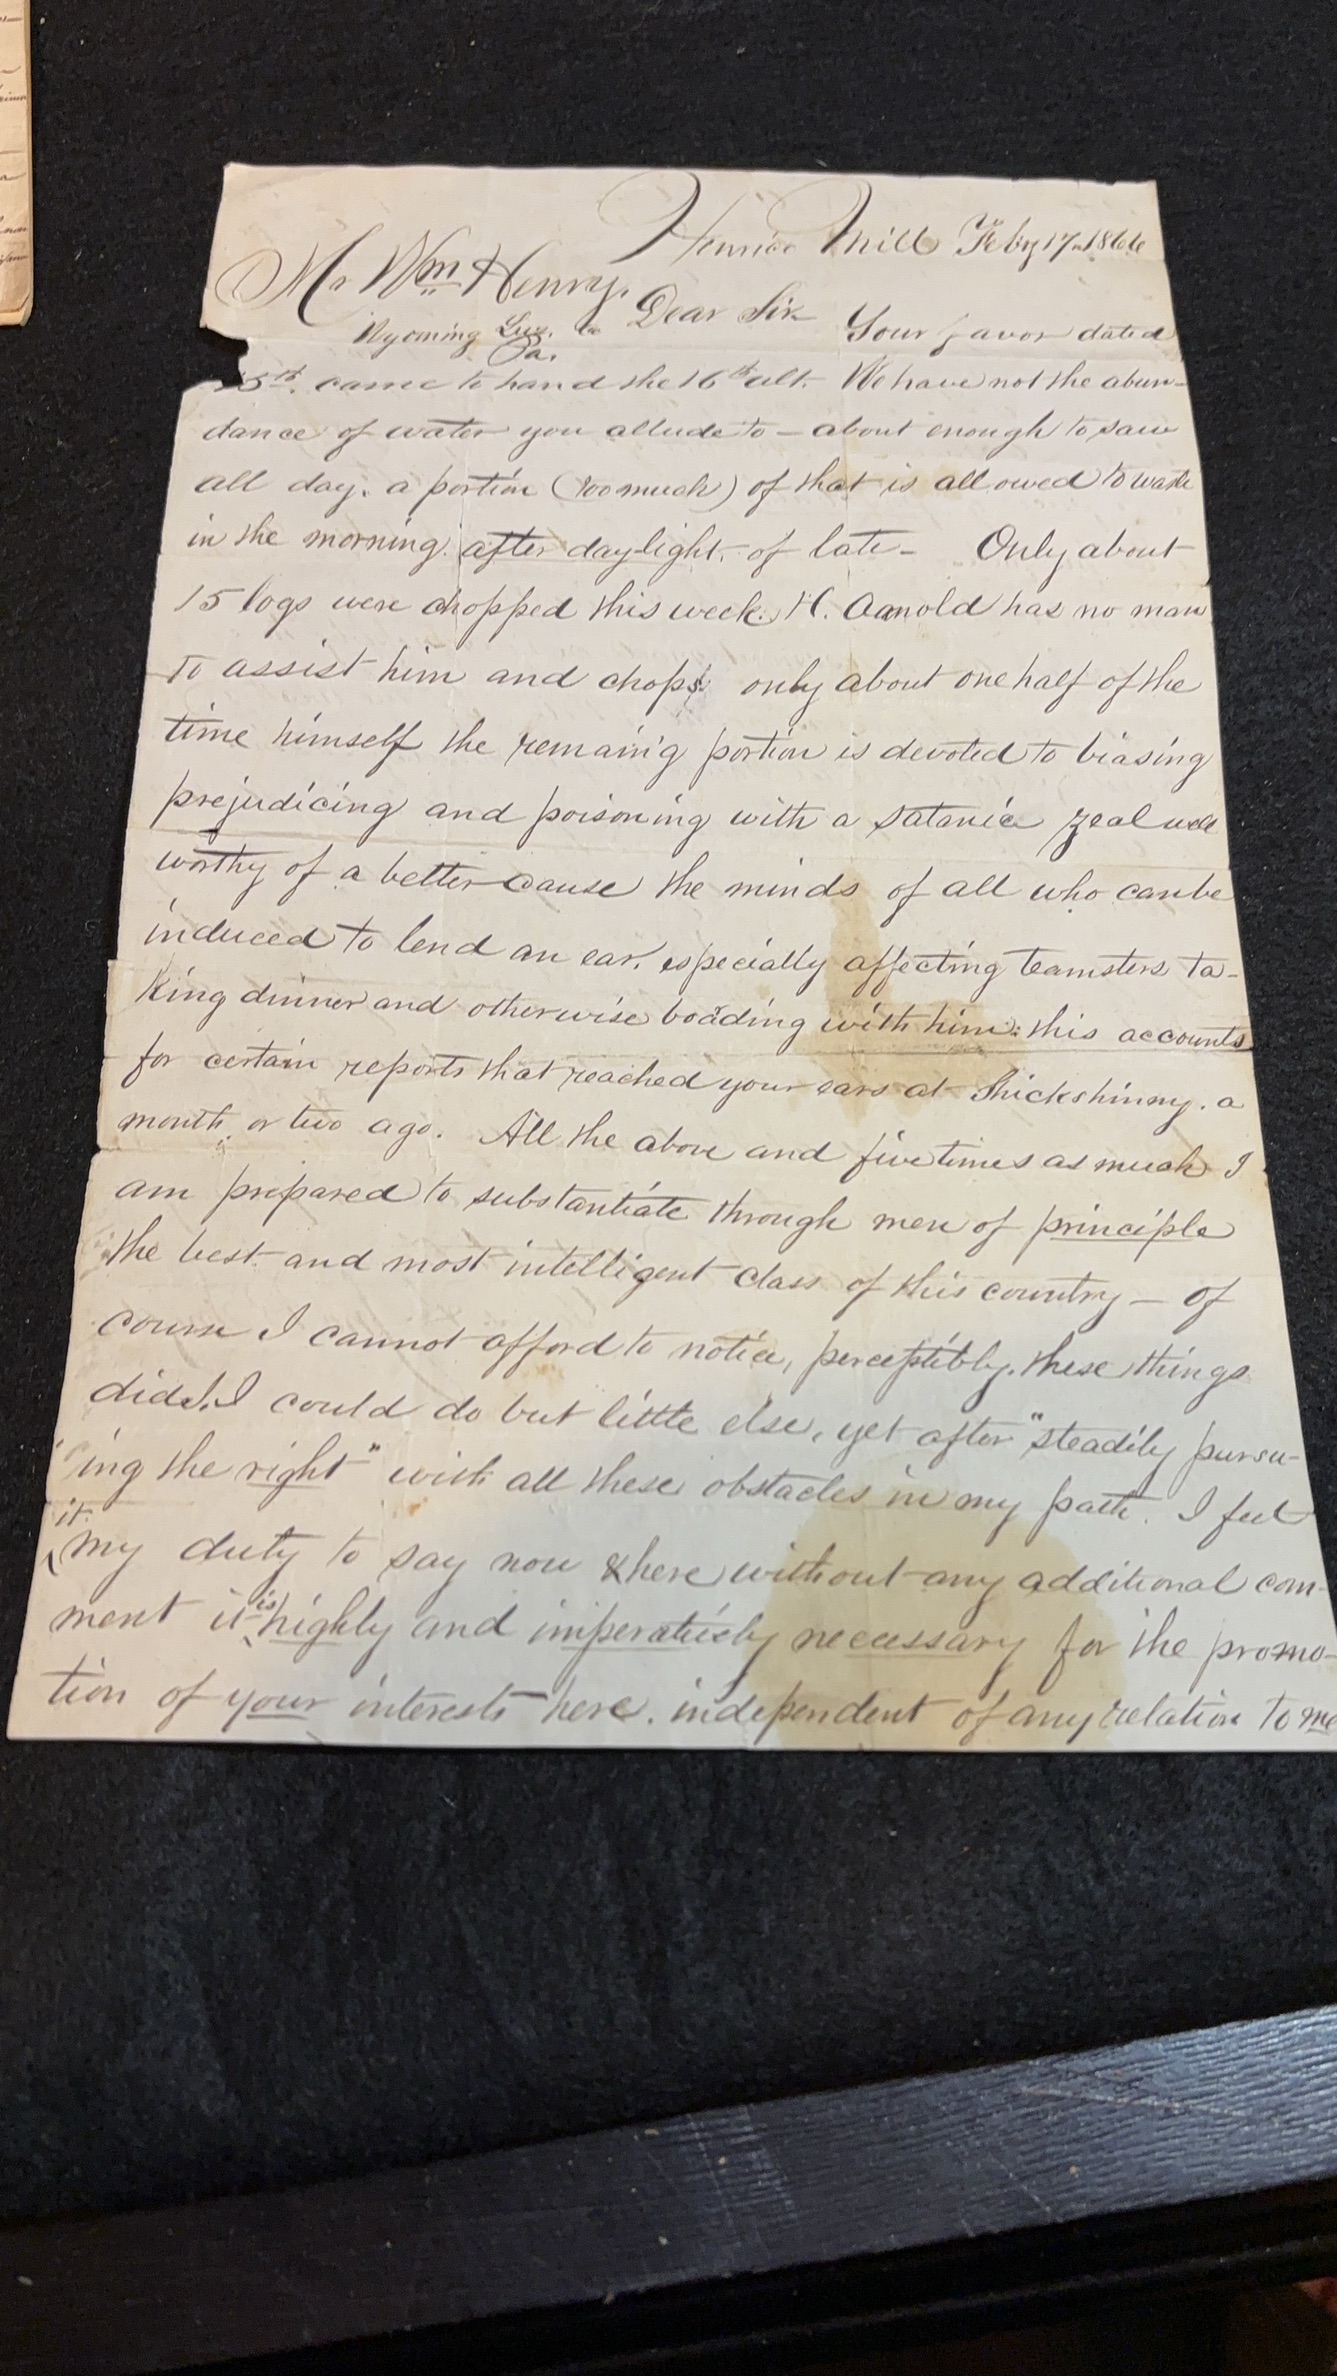 Mill Feby 17 1866
Mr Wm Henry.
Dear Sir Your favor dated
Wyoming Luz. Co
Pa.
15th. came to hand the 16th ult. We have not the abun-
dance of water you allude to – about enough to saw
all day. a portion (too much) of that is allowed to waste
in the morning. after daylight. of late – Only about
15 logs were chopped this week. H. Aarnold has no man
to assist him and chops only about one half of the
time himself the remaing portion is devoted to biasing
prejudicing and poisoning with a satanic zeal well
worthy of a better cause the minds of all who can be
induced to lend an ear. especially affecting teamsters ta-
king dinner and otherwise boading with him: this accounts
for certain reports that reached your ears at Shickshinny. a
month or two ago. All the above and five times as much I
am prepared to substantiate through men of principle
the best and most intelligent class of this country – of
course I cannot afford to notice, perceptibly. these things
did I. I could do but little else, yet after "steadily pursu-
"ing the right" with all these obstacles in my path. I feel
it
my duty to say now & here without any additional com-
ment it is highly and imperatively necessary for the promo-
tion of your interests here. independent of any relation to me